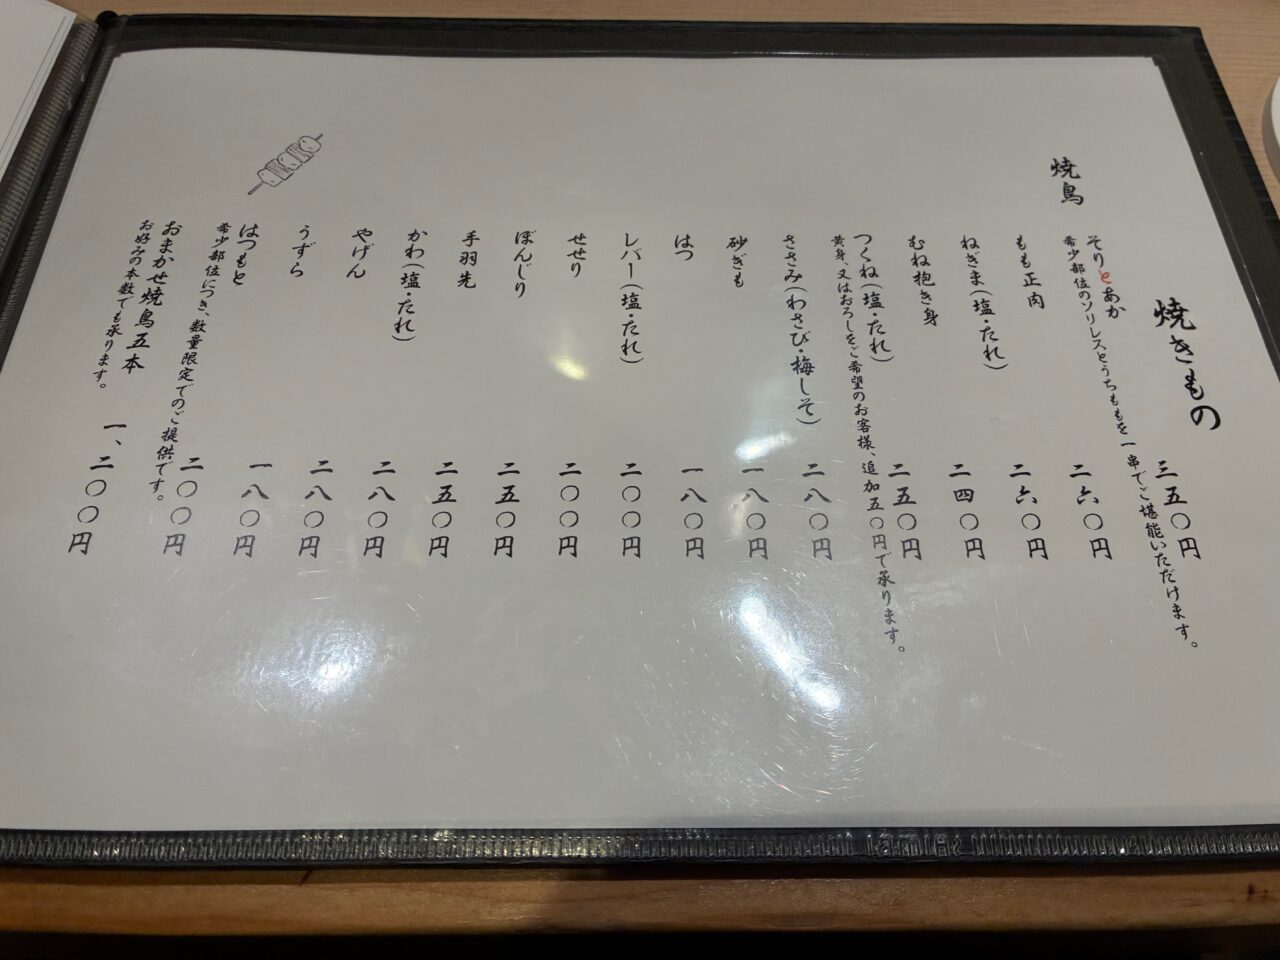 焼きもの
焼鳥
そりとあか 三五〇円
希少部位のソリレスとうちももを一串でご堪能いただけます。
もも正肉 二六〇円
ねぎま(塩・たれ) 二六〇円
むね抱き身 二四〇円
つくね(塩・たれ) 二五〇円
黄身、又はおろしをご希望のお客様、追加五〇円で承ります。
ささみ(わさび・梅しそ) 二八〇円
砂ぎも 一八〇円
はつ 一八〇円
レバー(塩・たれ) 二〇〇円
せせり 二〇〇円
ぼんじり 二五〇円
手羽先 二五〇円
かわ(塩・たれ) 二八〇円
やげん 二八〇円
うずら 一八〇円
はつもと 二〇〇円
希少部位につき、数量限定でのご提供です。
おまかせ焼鳥五本 一、二〇〇円
お好みの本数でも承ります。